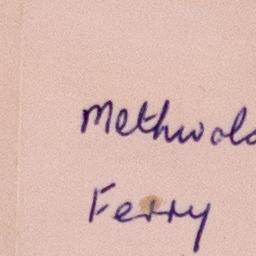 Methwold
Ferry